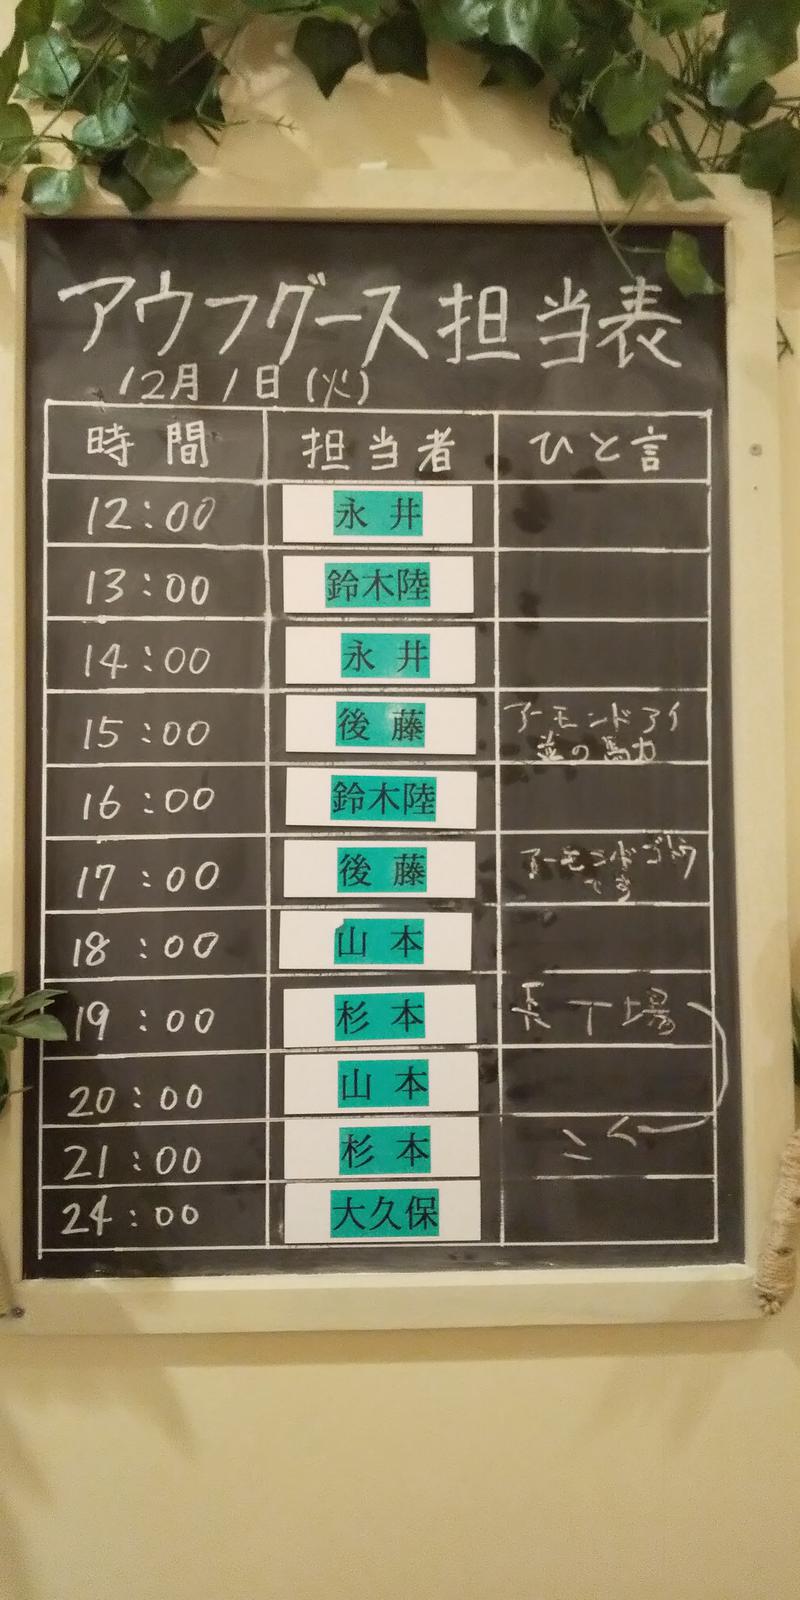 アウフグース担当表
12月1日(火)
時間 担当者 ひと言
12:00 永井
13:00 鈴木陸
14:00 永井
15:00 後藤 アーモンドアイ
並の馬力
16:00 鈴木陸
17:00 後藤 アーモンドゴトウ
です
18:00 山本
19:00 杉本 長丁場
20:00 山本
21:00 杉本
24:00 大久保